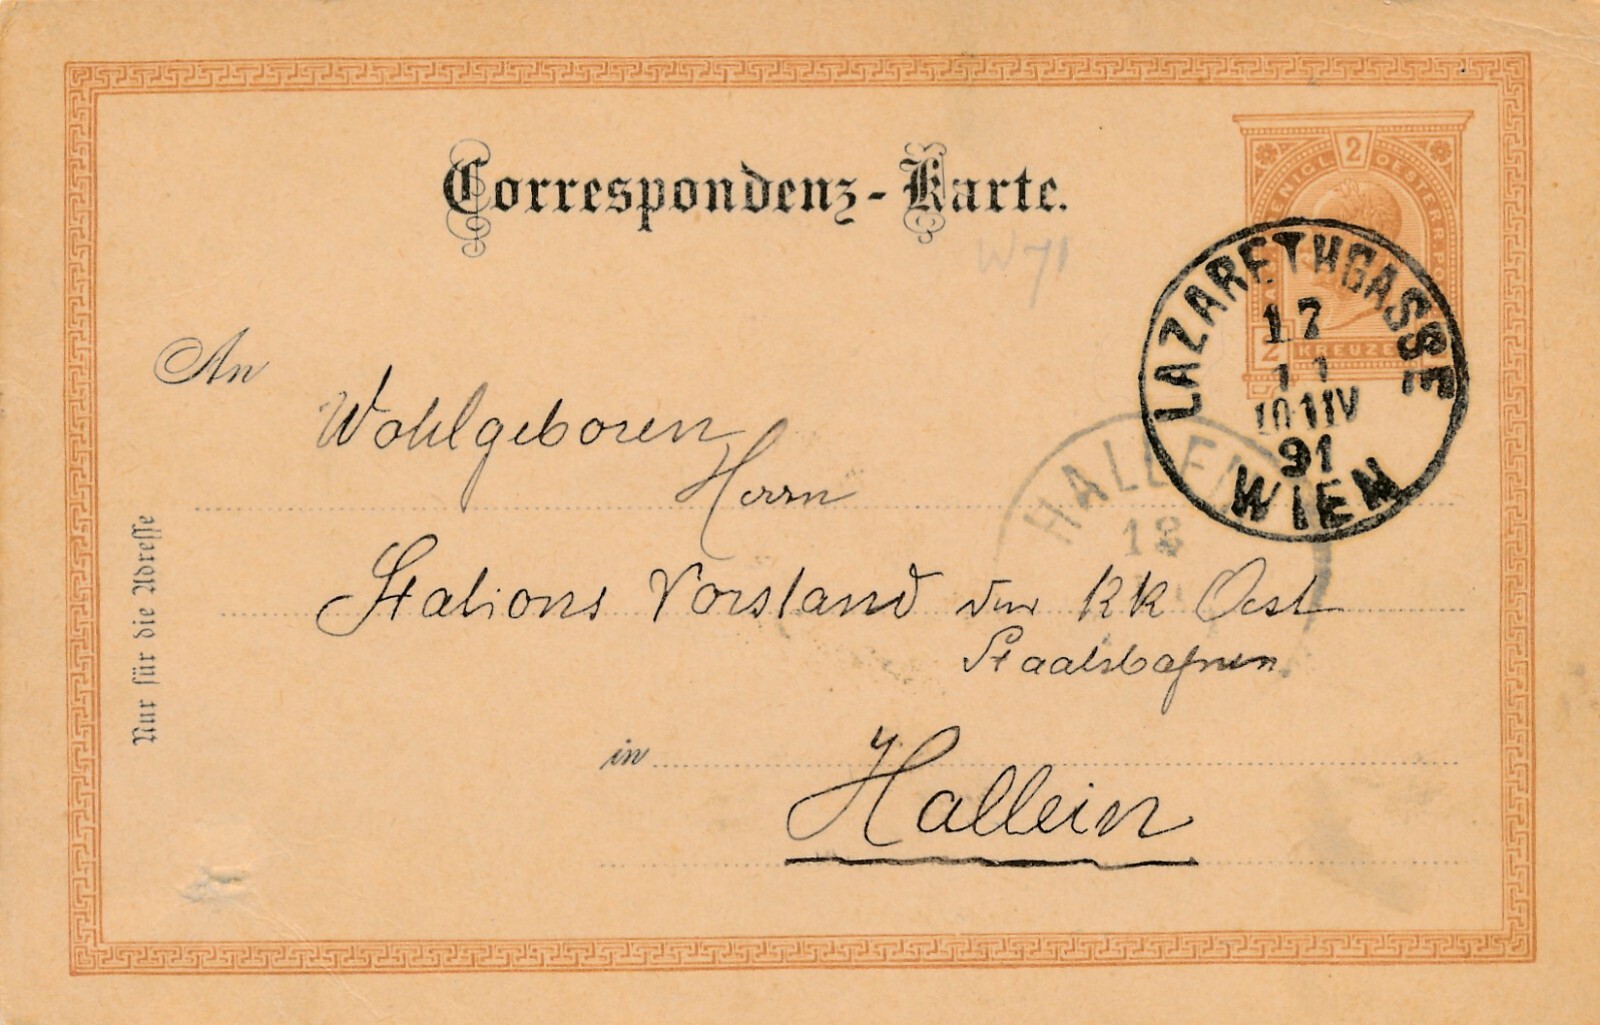 Correspondenz-Karte.
W 71
2
KÖNIGL OESTERR PO
2 KREUZE
LAZARETHGASSE
17
11
10·11V
91
WIEN
HALLEIN
18
An
Wohlgeboren
Herrn
Stations Vorstand der KK Oest
Staatsbahnen
in
Hallein
Nur für die Adresse